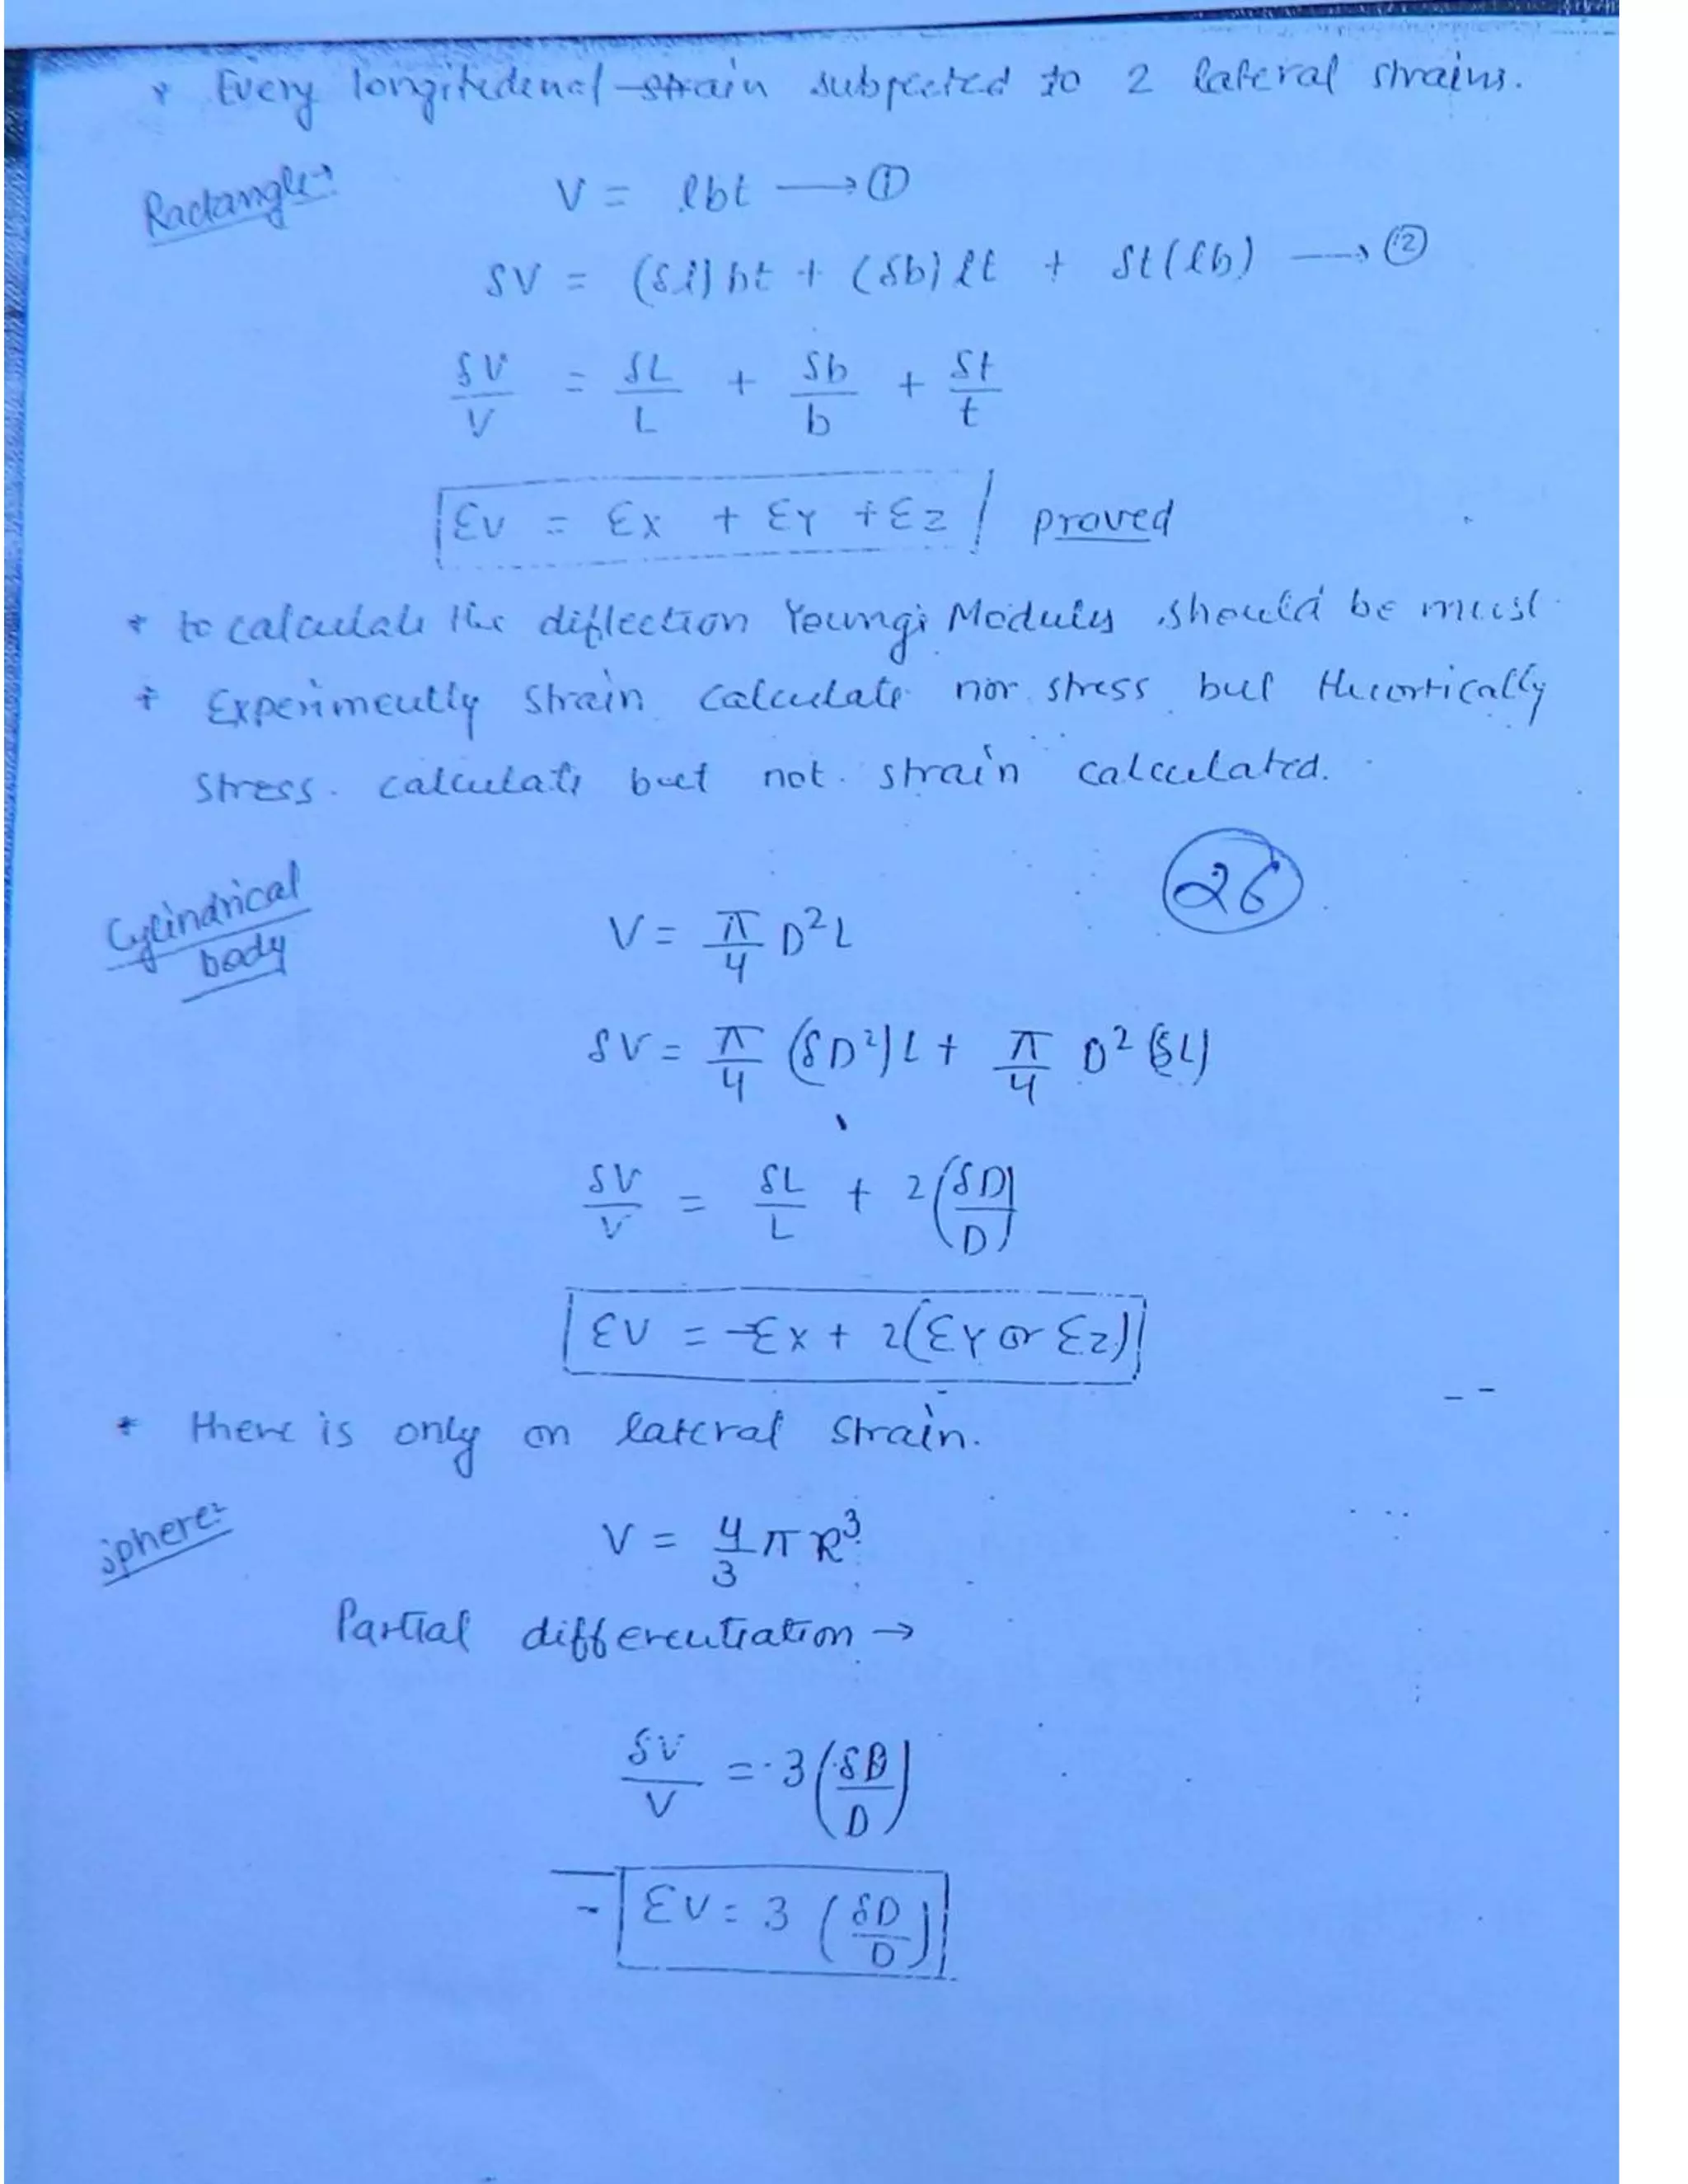 * Every longitedenal strain subjected to 2 lateral strains.
Ractangle→
V = lbt → ①
δV = (δl) bt + (δb) lt + δt(lb) → ②
δV/V = δL/L + δb/b + δt/t
εv = εx + εy + εz proved
* to calculate the diflection Young's Modulus should be must.
* Experimently strain calculate nor stress but theortically
stress calculate but not strain calculated.
26
Cylindrical
body
V = π/4 D²L
δV = π/4 (δD²)L + π/4 D²(δL)
δV/V = δL/L + 2(δD/D)
εV = εx + 2(εy or εz)
* there is only on lateral strain.
sphere:
V = 4/3 πR³
Partial differentiation →
δV/V = 3(δD/D)
εV = 3(δD/D)